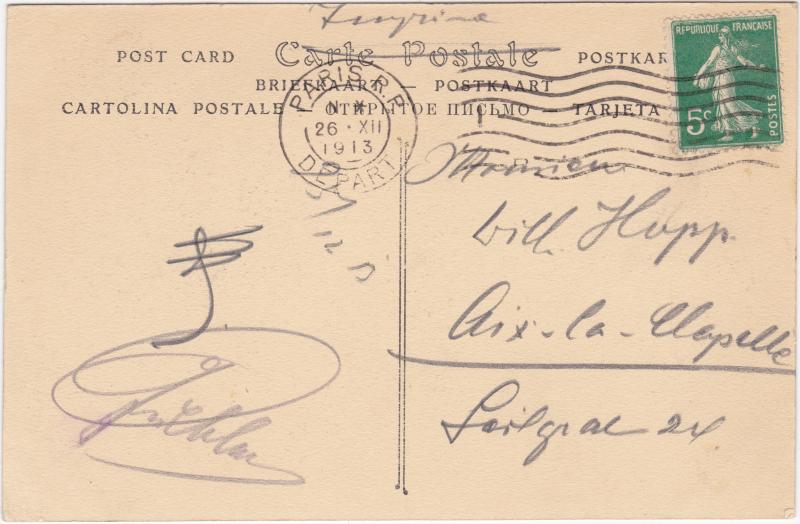 Imprimé
POST CARD Carte Postale POSTKAR
BRIEFKAART — POSTKAART
CARTOLINA POSTALE — ОТКРЫТОЕ ПИСЬМО — TARJETA
REPUBLIQUE FRANÇAISE
5c
POSTES
PARIS R.P.
26 · XII
1913
DEPART
Monsieur
Will. Hopp.
Aix-la-Chapelle
Seilgrab 24